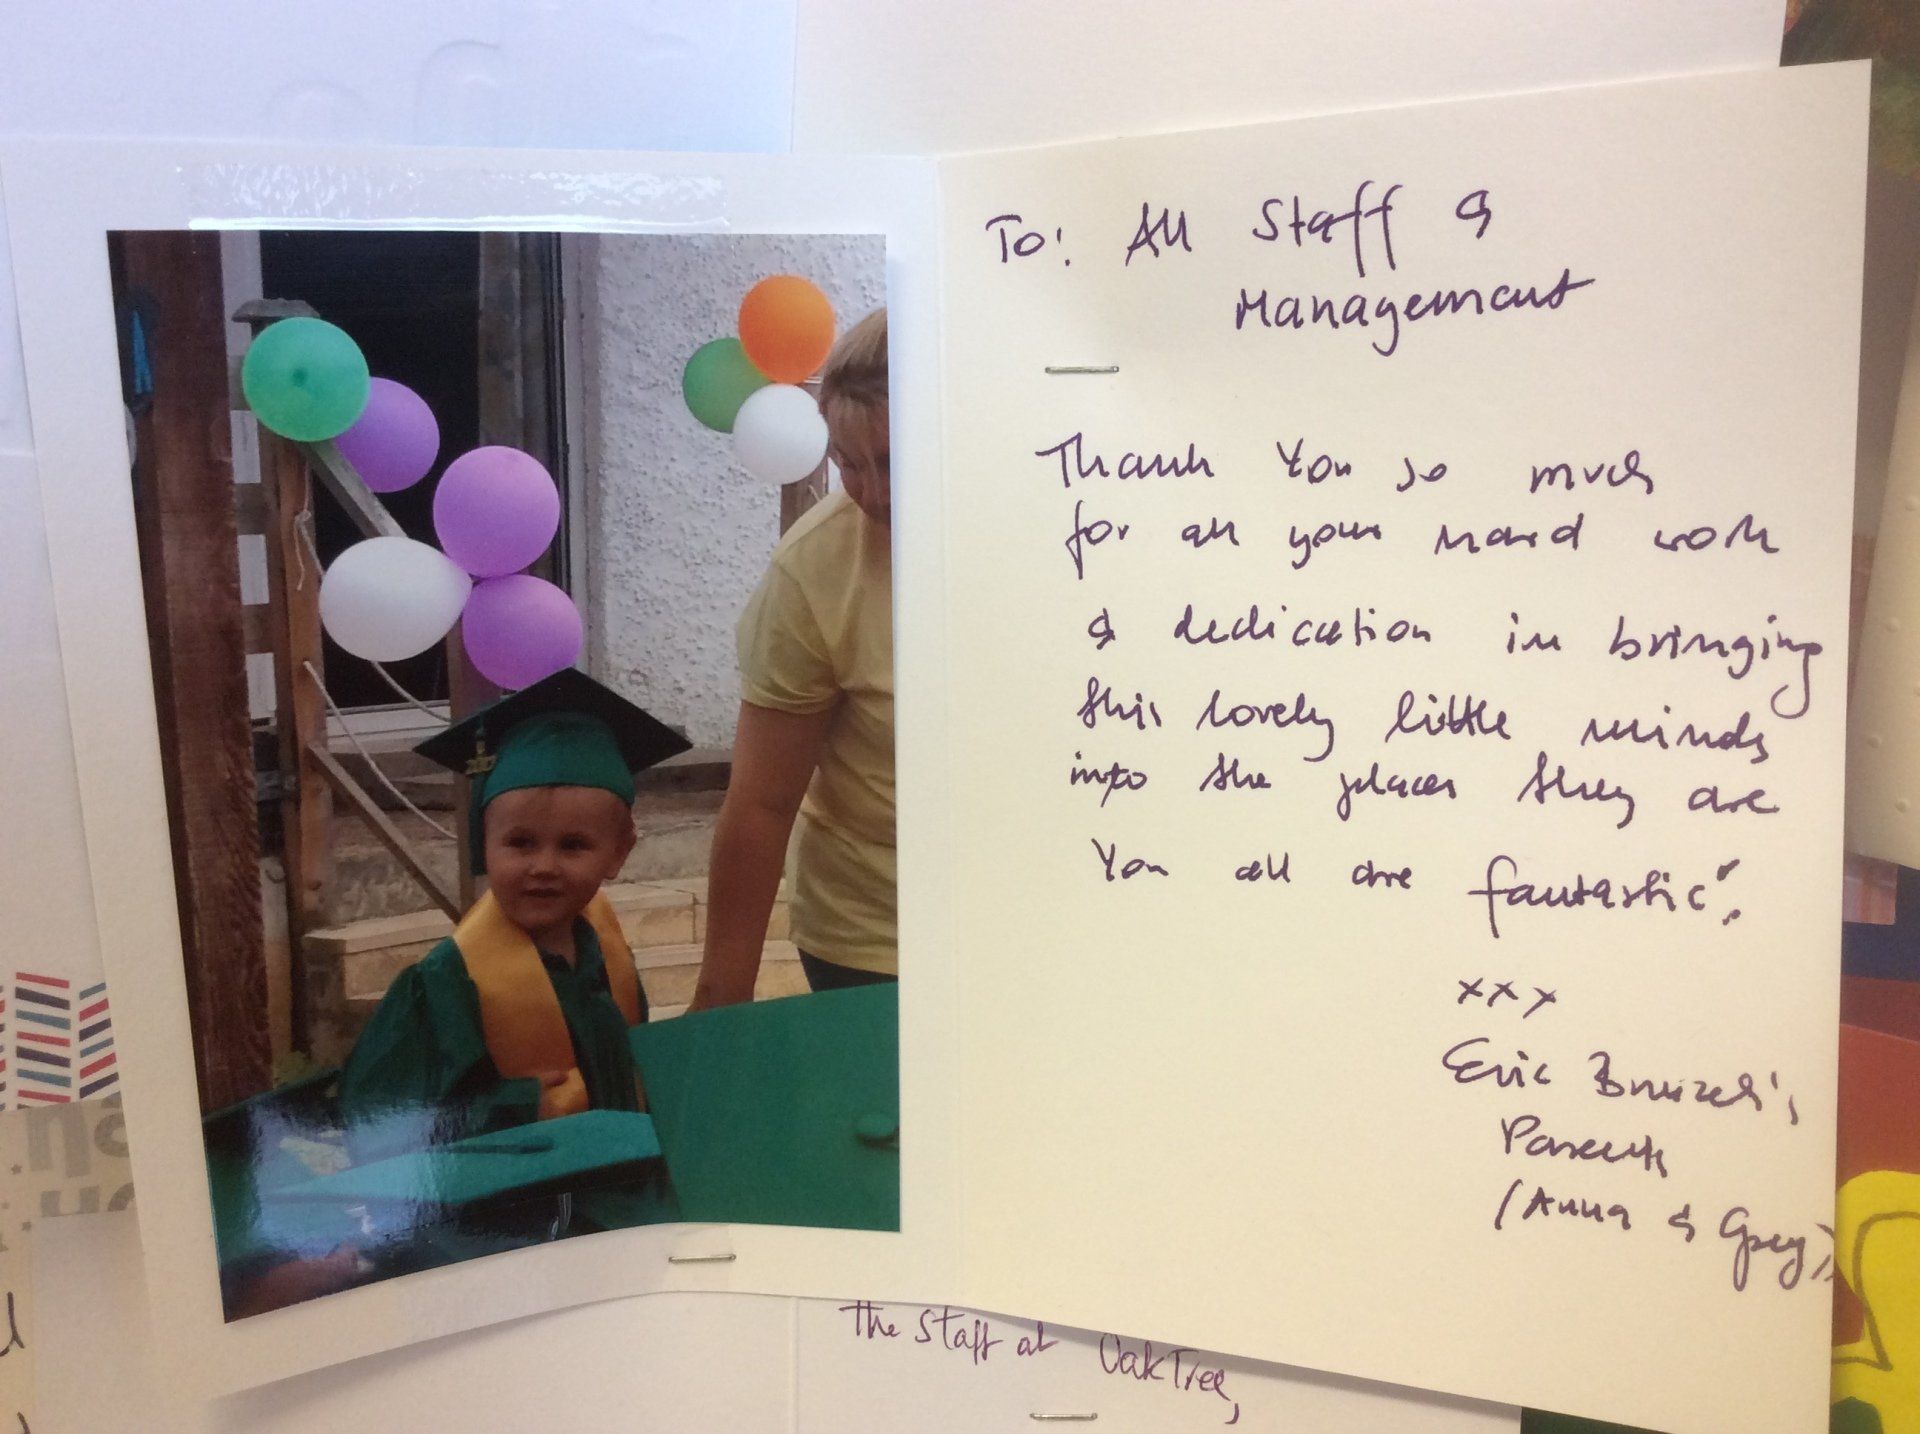 To: All Staff &
Management
Thank You so much
for all your hard work
& dedication in bringing
this lovely little minds
into the places they are
You all are fantastic!
xxx
Eric
Parents
(Anna & Greg)
The Staff at OakTree,